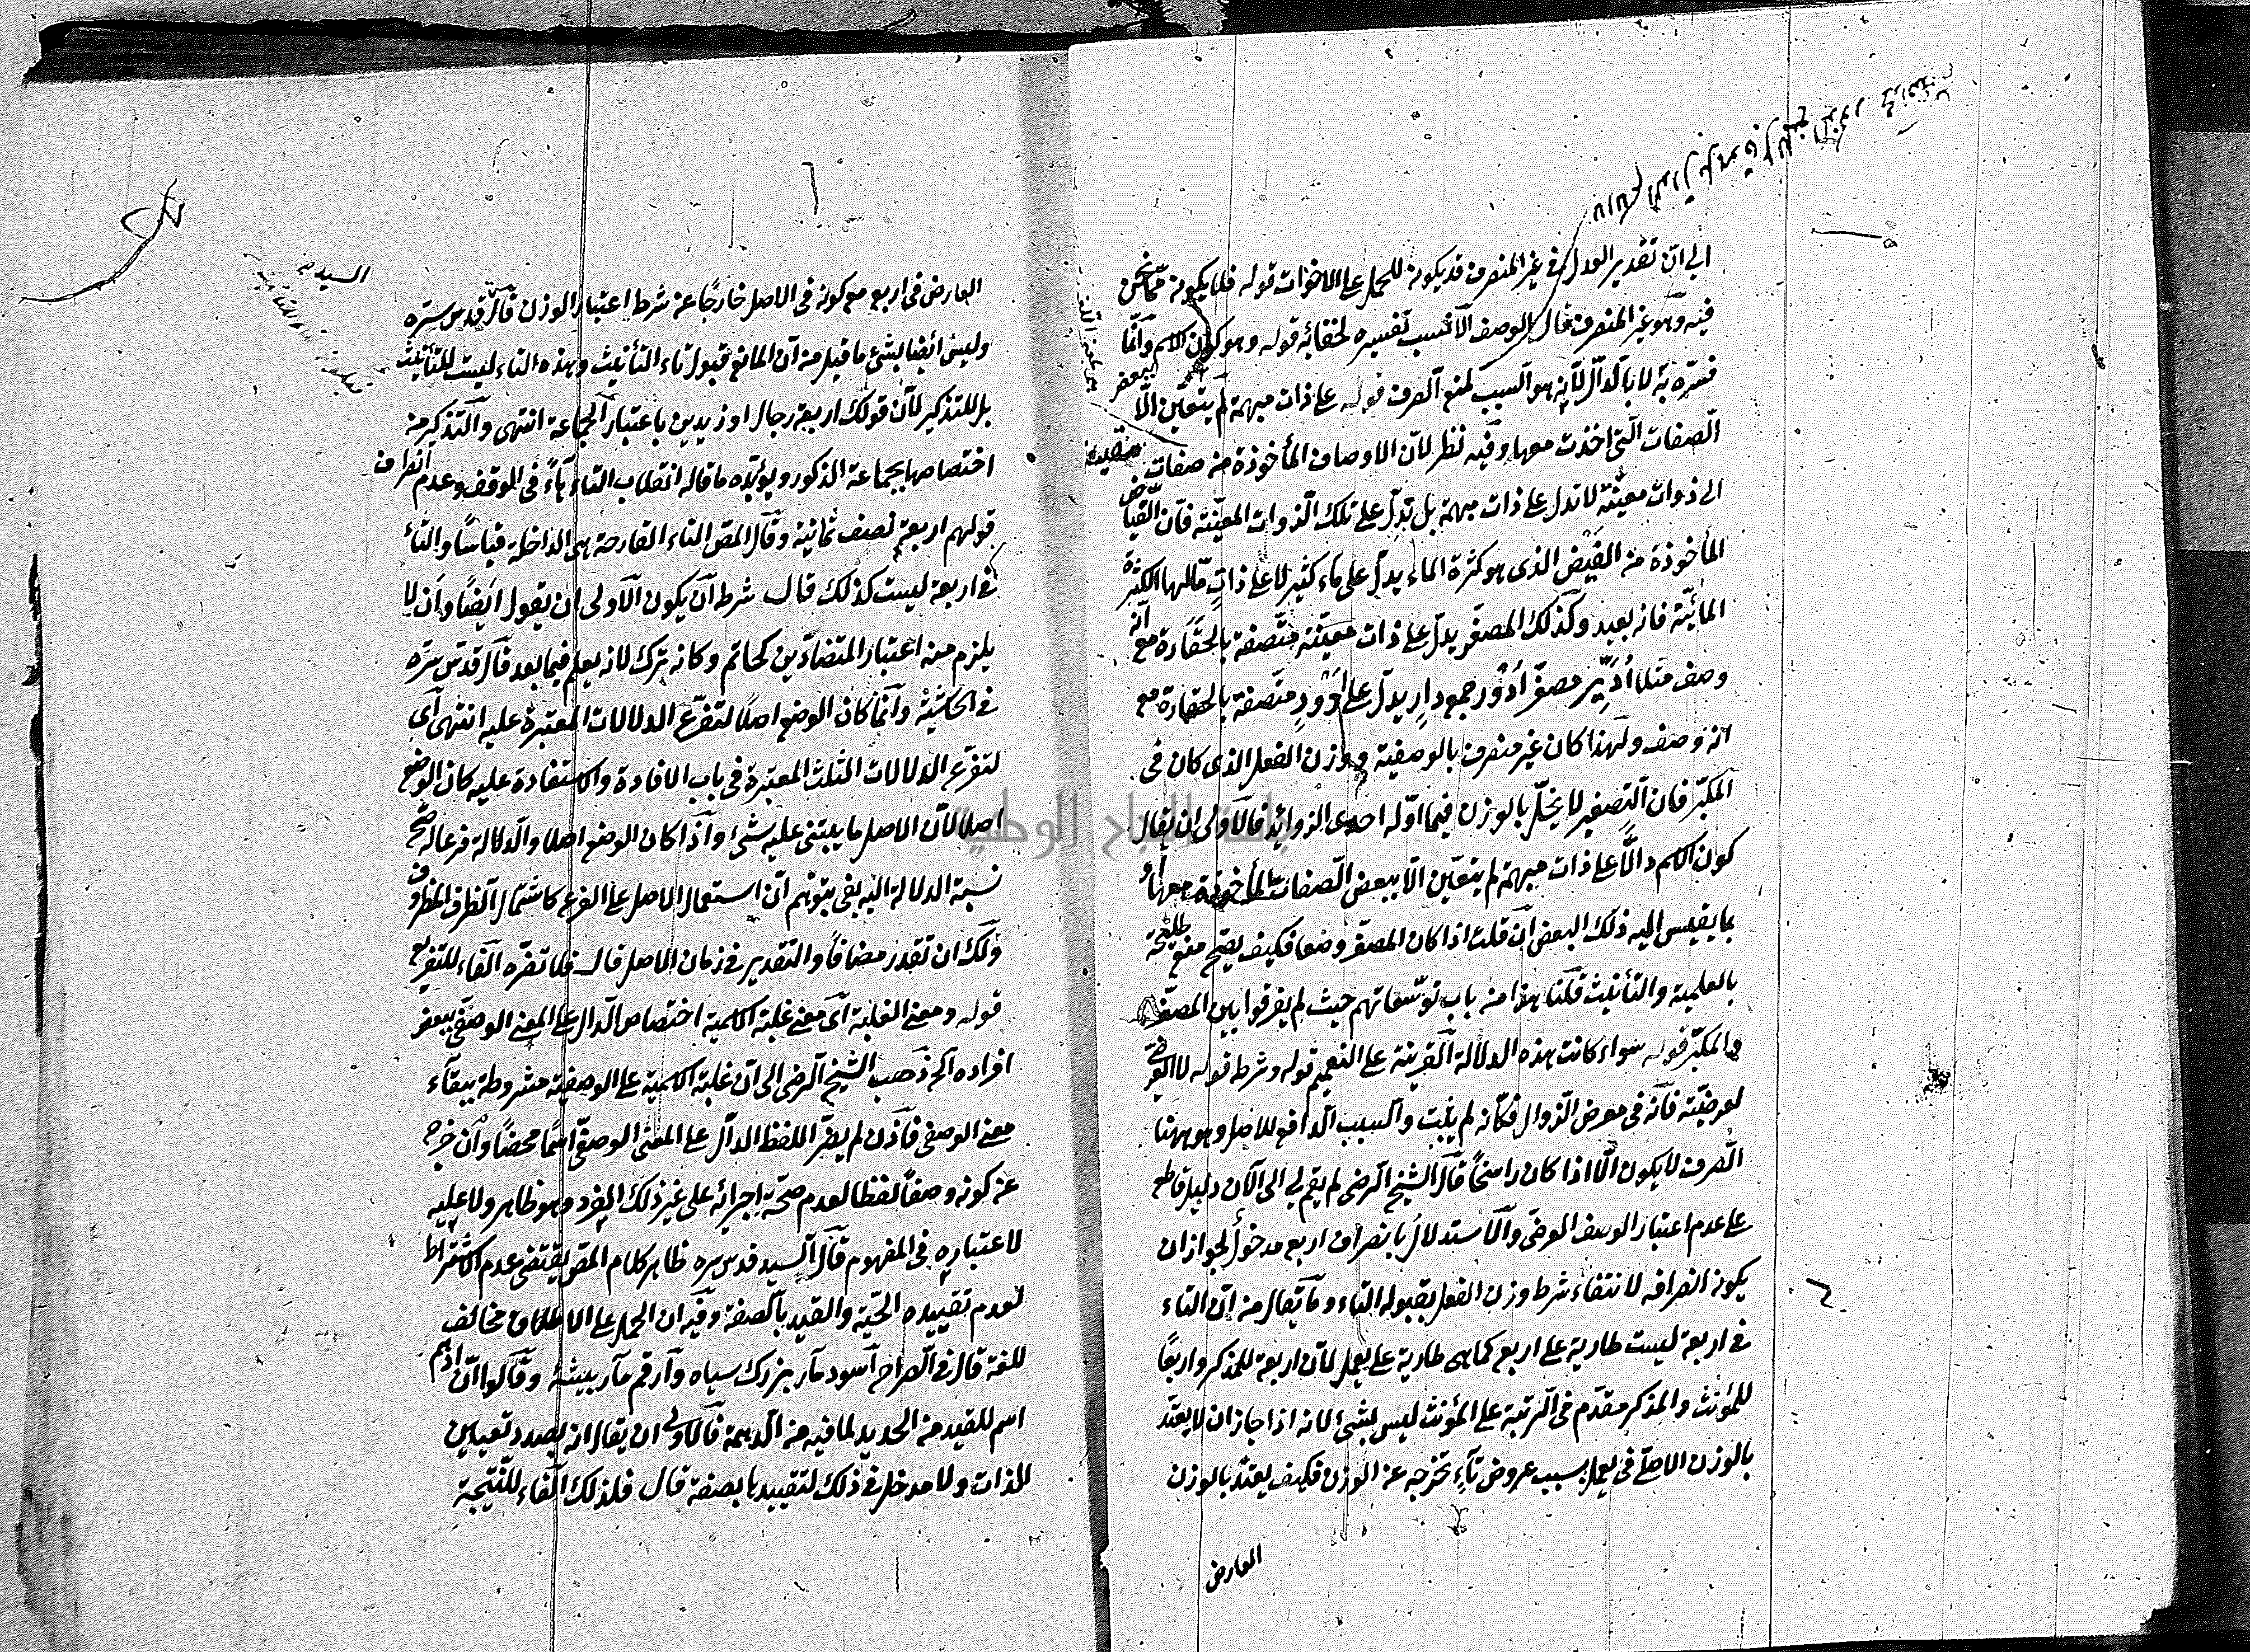 الى ان تقدير العدل فى غير المنصرف قد يكون للحمل على الاخوات قوله فلا يكون مما نحن
فيه وهو غير المنصرف قال الوصف الانسب تفسيره لخفائه قوله وهو كون الاسم وانما
فسره به لا بالدال لانه هو السبب لمنع الصرف قوله على ذات مبهمة لم يتعين الا ببعض
الصفات التى اخذت معها وفيه نظر لان الاوصاف المأخوذة من صفات منقسمة
الى ذوات معينة لا تدل على ذات مبهمة بل تدل على تلك الذوات المعينة فان الفياض
المأخوذة من الفيض الذى هو كثرة الماء يدل على ماء كثير لا على ذات ما لها الكثرة
المائية فانه بعيد وكذلك المصغر يدل على ذات معينة متصفة بالحقارة مع انه
وصف مثلا أديّر مصغر أدؤر جمع دار يدل على أدؤر متصفة بالحقارة مع
انه وصف ولهذا كان غير منصرف بالوصفية ووزن الفعل الذى كان فى
المكبر فان التصغير لا يخل بالوزن فيما اوله احدى الزوائد فالاولى ان يقال
كون الاسم دالا على ذات مبهمة لم يتعين الا ببعض الصفات المأخوذة معها او
بما يقيس اليه ذلك البعض ان قلت اذا كان المصغر وصفا فكيف يصح منع طليحة
بالعلمية والتأنيث قلنا هذا من باب توسعاتهم حيث لم يفرقوا بين المصغر
والمكبر قوله سواء كانت هذه الدلالة القرينة على التعميم قوله وشرط قوله لا العرضى
لعرضيته فانه فى معرض الزوال فكانه لم يثبت والسبب الدافع للاصل وهو ههنا
الصرف لا يكون الا اذا كان راسخا قال الشيخ الرضى لم يقم لى الى الآن دليل قاطع
على عدم اعتبار الوصف العرضى والاستدلال بانصراف اربع مدخول لجواز ان
يكون انصرافه لانتفاء شرط وزن الفعل بقبوله التاء وما يقال من ان التاء
فى اربعة ليست طارية على اربع كما هى طارية على يعمل لان اربعة للمذكر واربعا
للمؤنث والمذكر مقدم فى الرتبة على المؤنث ليس بشئ لانه اذا جاز ان لا يعتد
بالوزن الاصلى فى يعمل بسبب عروض تاء تخرجه عن الوزن فكيف يعتد بالوزن
العارض
السيد
العارض فى اربع مع كونه فى الاصل خارجا عن شرط اعتبار الوزن قال قدس سره
وليس ايضا بشئ ما قيل من ان المانع قبول تاء التأنيث وهذه التاء ليست للتأنيث
بل للتذكير لان قولك اربعة رجال اوزيدين باعتبار الجماعة انتهى والتذكير من
اختصاصها بجماعة الذكور ويؤيده ما قاله انقلاب التاء هاء فى الوقف وعدم انصراف
قولهم اربعة نصف ثمانية وقال المص التاء القادحة هى الداخلة قياسا والتاء
فى اربعة ليست كذلك قال شرطه ان يكون الاولى ان يقول ايضا وان لا
يلزم منه اعتبار المتضادين كحاتم وكانه ترك لانه يعلم فيما بعد قال قدس سره
فى الحاشية وانما كان الوضع اصلا لتفرع الدلالات المعتبرة عليه انتهى اى
لتفرع الدلالات الثلث المعتبرة فى باب الافادة والاستفادة عليه كان الوضع
اصلا لان الاصل ما يبتنى عليه شئ واذا كان الوضع اصلا والدلالة فرعا له صح
نسبة الدلالة اليه بفى بتوهم ان استعمال الاصل على الفرع كاشتمال الظرف المظروف
ولك ان تقدر مضافا والتقدير فى زمان الاصل قال فلا تضره الفاء للتفريع
قوله ومعنى الغلبة اى معنى غلبة الاسمية اختصاص الدال على المعنى الوصفى ببعض
افراده الخ ذهب الشيخ الرضى الى ان غلبة الاسمية على الوصفية مشروطة ببقاء
معنى الوصفى فاذن لم يصر اللفظ الدال على المعنى الوصفى اسما محضا وان خرج
عن كونه وصفا لفظا لعدم صحة اجرائه على غير ذلك الفرد وهو ظاهر ولا عليه
لاعتباره فى المفهوم قال السيد قدس سره ظاهر كلام المص يقتضى عدم الاشتراط
لعدم تقييده الحية والقيد بالصفة وفيه ان الحمل على الاطلاق مخالف
للغة قال فى الصراح اسود مار بزرك سياه وارقم مار بيشه وقالوا ان ادهم
اسم للقيد من الحديد لما فيه من الدهمة فالاولى ان يقال انه بصدد تعيين
الذات ولا مدخل فى ذلك لتقييدها بصفة قال فلذلك الفاء للنتيجة